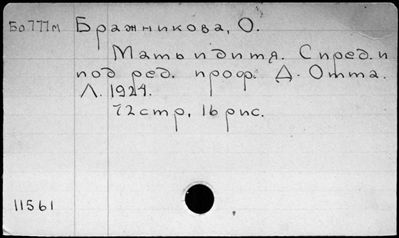 Бо 777м Бражникова, О.
Мать и дитя. С пред. и
под ред. проф. Д. Отта.
Л. 1924.
72 стр, 16 рис.
11561